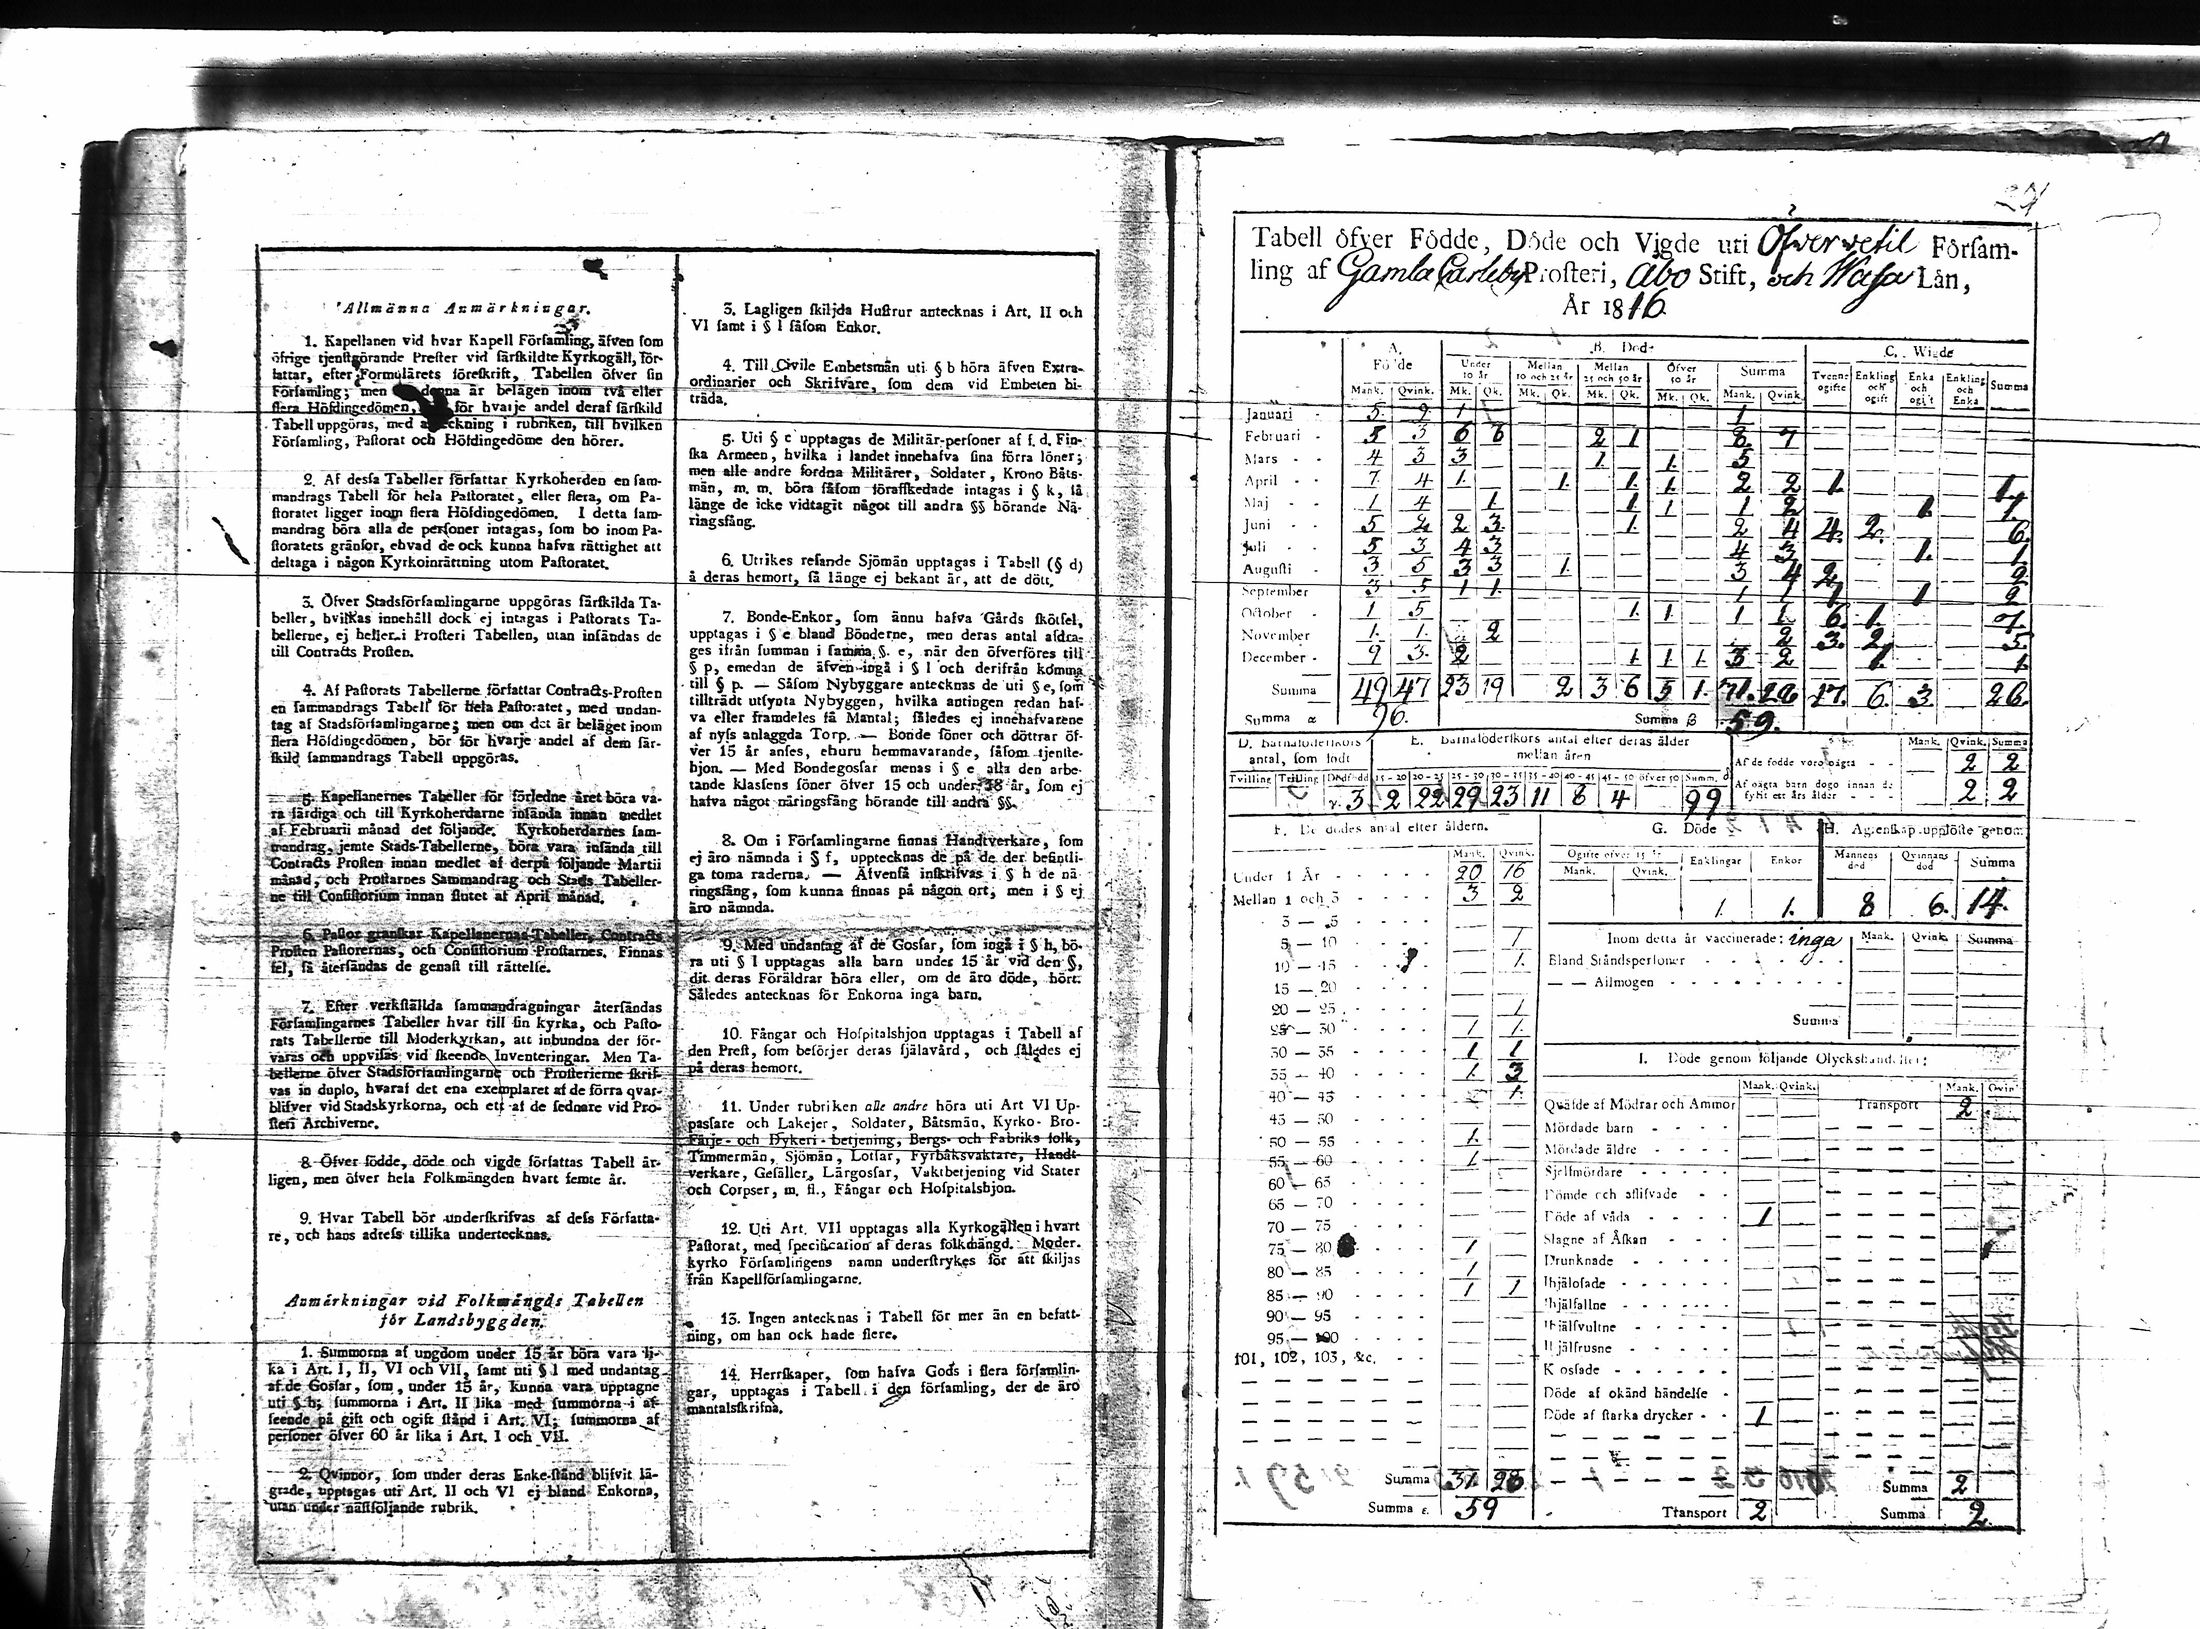 Allmänna Anmärkningar.
1. Kapellanen vid hvar Kapell Församling, äfven som
öfrige tjenstgörande Prester vid särskildte Kyrkogäll, för-
fattar, efter Formulärets föreskrift, Tabellen öfver sin
Församling; men denna är belägen inom två eller
flera Höfdingedömen, för hvarje andel deraf särskild
Tabell uppgöras, med anteckning i rubriken, till hvilken
Församling, Pastorat och Höfdingedöme den hörer.
2. Af dessa Tabeller författar Kyrkoherden en sam-
mandrags Tabell för hela Pastoratet, eller flera, om Pa-
storatet ligger inom flera Höfdingedömen. I detta sam-
mandrag böra alla de personer intagas, som bo inom Pa-
storatets gränsor, ehvad de ock kunna hafva rättighet att
deltaga i någon Kyrkoinrättning utom Pastoratet.
3. Öfver Stadsförsamlingarne uppgöras särskilda Ta-
beller, hvilkas innehåll dock ej intagas i Pastorats Ta-
bellerne, ej heller i Prosteri Tabellen, utan insändas de
till Contracts Prosten.
4. Af Pastorats Tabellerne författar Contracts-Prosten
en sammandrags Tabell för hela Pastoratet, med undan-
tag af Stadsförsamlingarne; men om det är beläget inom
flera Höfdingedömen, bör för hvarje andel af dem sär-
skild sammandrags Tabell uppgöras.
5. Kapellanernes Tabeller för förledne året böra va-
ra färdiga och till Kyrkoherdarne insända innan medlet
af Februarii månad det följande. Kyrkoherdarnes sam-
mandrag, jemte Stads-Tabellerne, böra vara insända till
Contracts Prosten innan medlet af derpå följande Martii
månad, och Prostarnes Sammandrag och Stads Tabeller-
ne till Consistorium innan slutet af April månad.
6. Pastor granskar Kapellanernas Tabeller, Contracts
Prosten Pastorernas, och Consistorium Prostarnes. Finnas
fel, så återsändas de genast till rättelse.
7. Efter verkställda sammandragningar återsändas
Församlingarnes Tabeller hvar till sin kyrka, och Pasto-
rats Tabellerne till Moderkyrkan, att inbundna der för-
varas och uppvisas vid skeende Inventeringar. Men Ta-
bellerne öfver Stadsförsamlingarne och Prosterierne skrif-
vas in duplo, hvaraf det ena exemplaret af de förra qvar-
blifver vid Stadskyrkorna, och ett af de sednare vid Pro-
steri Archiverne.
8. Öfver födde, döde och vigde författas Tabell år-
ligen, men öfver hela Folkmängden hvart femte år.
9. Hvar Tabell bör underskrifvas af dess Författa-
re, och hans adress tillika undertecknas.
Anmärkningar vid Folkmängds Tabellen
för Landsbyggden.
1. Summorna af ungdom under 15 år böra vara li-
ka i Art. I, II, VI och VII, samt uti § l med undantag
af de Gossar, som, under 15 år, kunna vara upptagne
uti § h; summorna i Art. II lika med summorna i af-
seende på gift och ogift stånd i Art. VI; summorna af
personer öfver 60 år lika i Art. I och VII.
2. Qvinnor, som under deras Enke-stånd blifvit lä-
grade, upptagas uti Art. II och VI ej bland Enkorna,
utan under nästföljande rubrik.
3. Lagligen skiljda Hustrur antecknas i Art. II och
VI samt i § l såsom Enkor.
4. Till Civile Embetsmän uti § b höra äfven Extra-
ordinarier och Skrifvare, som dem vid Embeten bi-
träda.
5. Uti § c upptagas de Militär-personer af f. d. Fin-
ska Armeen, hvilka i landet innehafva sina förra löner;
men alle andre fordna Militärer, Soldater, Krono Båts-
män, m. m. böra såsom förafskedade intagas i § k, så
länge de icke vidtagit något till andra §§ hörande Nä-
ringsfång.
6. Utrikes resande Sjömän upptagas i Tabell (§ d)
å deras hemort, så länge ej bekant är, att de dött.
7. Bonde-Enkor, som ännu hafva Gårds skötsel,
upptagas i § e bland Bönderne, men deras antal afdra-
ges ifrån summan i samma §. e, när den öfverföres till
§ p, emedan de äfven ingå i § l och derifrån komma
till § p. — Såsom Nybyggare antecknas de uti § e, som
tillträdt utsynta Nybyggen, hvilka antingen redan haf-
va eller framdeles få Mantal; således ej innehafvarene
af nyss anlaggda Torp. — Bonde söner och döttrar öf-
ver 15 år anses, ehuru hemmavarande, såsom tjenste-
hjon. — Med Bondegossar menas i § e alla den arbe-
tande klassens söner öfver 15 och under 18 år, som ej
hafva något näringsfång hörande till andra §§.
8. Om i Församlingarne finnas Handtverkare, som
ej äro nämnda i § f, upptecknas de på de der befintli-
ga toma raderna. — Äfvenså inskrifvas i § h de nä-
ringsfång, som kunna finnas på någon ort, men i § ej
äro nämnda.
9. Med undantag af de Gossar, som ingå i § h, bö-
ra uti § l upptagas alla barn under 15 år vid den §,
dit deras Föräldrar böra eller, om de äro döde, hört.
Således antecknas för Enkorna inga barn.
10. Fångar och Hospitalshjon upptagas i Tabell af
den Prest, som besörjer deras själavård, och således ej
på deras hemort.
11. Under rubriken alle andre höra uti Art VI Up-
passare och Lakejer, Soldater, Båtsmän, Kyrko- Bro-
Färje- och Dykeri-betjening, Bergs- och Fabriks folk,
Timmermän, Sjömän, Lotsar, Fyrbåksvaktare, Handt-
verkare, Gesäller, Lärgossar, Vaktbetjening vid Stater
och Corpser, m. fl., Fångar och Hospitalshjon.
12. Uti Art. VII upptagas alla Kyrkogällen i hvart
Pastorat, med specification af deras folkmängd. Moder-
kyrko Församlingens namn understrykes för att skiljas
från Kapellförsamlingarne.
13. Ingen antecknas i Tabell för mer än en befatt-
ning, om han ock hade flere.
14. Herrskaper, som hafva Gods i flera församlin-
gar, upptagas i Tabell i den församling, der de äro
mantalsskrifna.
Tabell öfver Födde, Döde och Vigde uti Öfververtil Försam-
ling af Gamla Carleby Prosteri, Åbo Stift, och Wasa Län,
År 1816.
A. Födde B. Döde C. Wigde
Under 10 år Mellan 10 och 25 år Mellan 25 och 50 år Öfver 50 år Summa Tvenne ogifte Enkling och ogift Enka och ogift Enkling och Enka Summa
Mank. Qvink. Mk. Qk. Mk. Qk. Mk. Qk. Mk. Qk. Mank. Qvink.
Januari 5 9 1 1
Februari 5 3 6 6 2 1 8 7
Mars 4 3 3 1. 1. 5
April 7 4 1. 1. 1. 1. 2 2 1. 1.
Maj 1 4 1 1 1 1 2 1. 1.
Juni 5 2 2 3 1. 2 4 4. 2. 6.
Juli 5 3 4 3 4 3 1. 1
Augusti 3 5 3 3 1. 3 4 2 2
September 3 5 1 1 1 1 1 1 2
October 1 5 1. 1. 1 1. 6. 1. 7.
November 1. 1. 2 2 3. 2 5.
December 9 3. 2 1. 1. 1. 3 2 1. 1.
Summa 49 47 23 19 2 3 6 5 1. 17. 6. 3. 26.
Summa α 96. Summa β 59.
D. Barnaföderskors antal, som födt E. Barnaföderskors antal efter deras ålder mellan åren
Mank. Qvink. Summa
Tvilling Trilling Dödfödd 15–20 20–25 25–30 30–35 35–40 40–45 45–50 öfver 50 Summ. δ
Af de födde voro oägta 2 2
γ. 3 2 22 29 23 11 6 4 99
Af oägta barn dogo innan de fyllt ett års ålder 2 2
F. De dödes antal efter åldern.
Mank. Qvink.
Under 1 År 20 16
Mellan 1 och 3 3 2
3 — 5
5 — 10 1
10 — 15 1.
15 — 20
20 — 25 1
25 — 30 1 1.
30 — 35 1 1
35 — 40 1. 3
40 — 45 1.
45 — 50
50 — 55 1.
55 — 60 1
60 — 65
65 — 70
70 — 75
75 — 80 1
80 — 85 1
85 — 90 1 1
90 — 95
95 — 100
101, 102, 103, &c.
Summa 31 28
Summa ε. 59
G. Döde
Ogifte öfver 15 år Enklingar Enkor
Mank. Qvink.
1. 1.
H. Ägtenskap upplöste genom
Mannens död Qvinnans död Summa
8 6. 14.
Inom detta år vaccinerade: inga Mank. Qvink. Summa
Bland Ståndspersoner
— — Allmogen
Summa
I. Döde genom följande Olyckshändelser:
Mank. Qvink. Mank. Qvin
Qväfde af Mödrar och Ammor Transport 2
Mördade barn
Mördade äldre
Sjelfmördare
Dömde och aflifvade
Döde af våda 1
Slagne af Åskan
Drunknade
Ihjälosade
Ihjälfallne
Ihjälsvultne
Ihjälfrusne
Kossade
Döde af okänd händelse
Döde af starka drycker 1
Summa 2
Transport 2 Summa 2